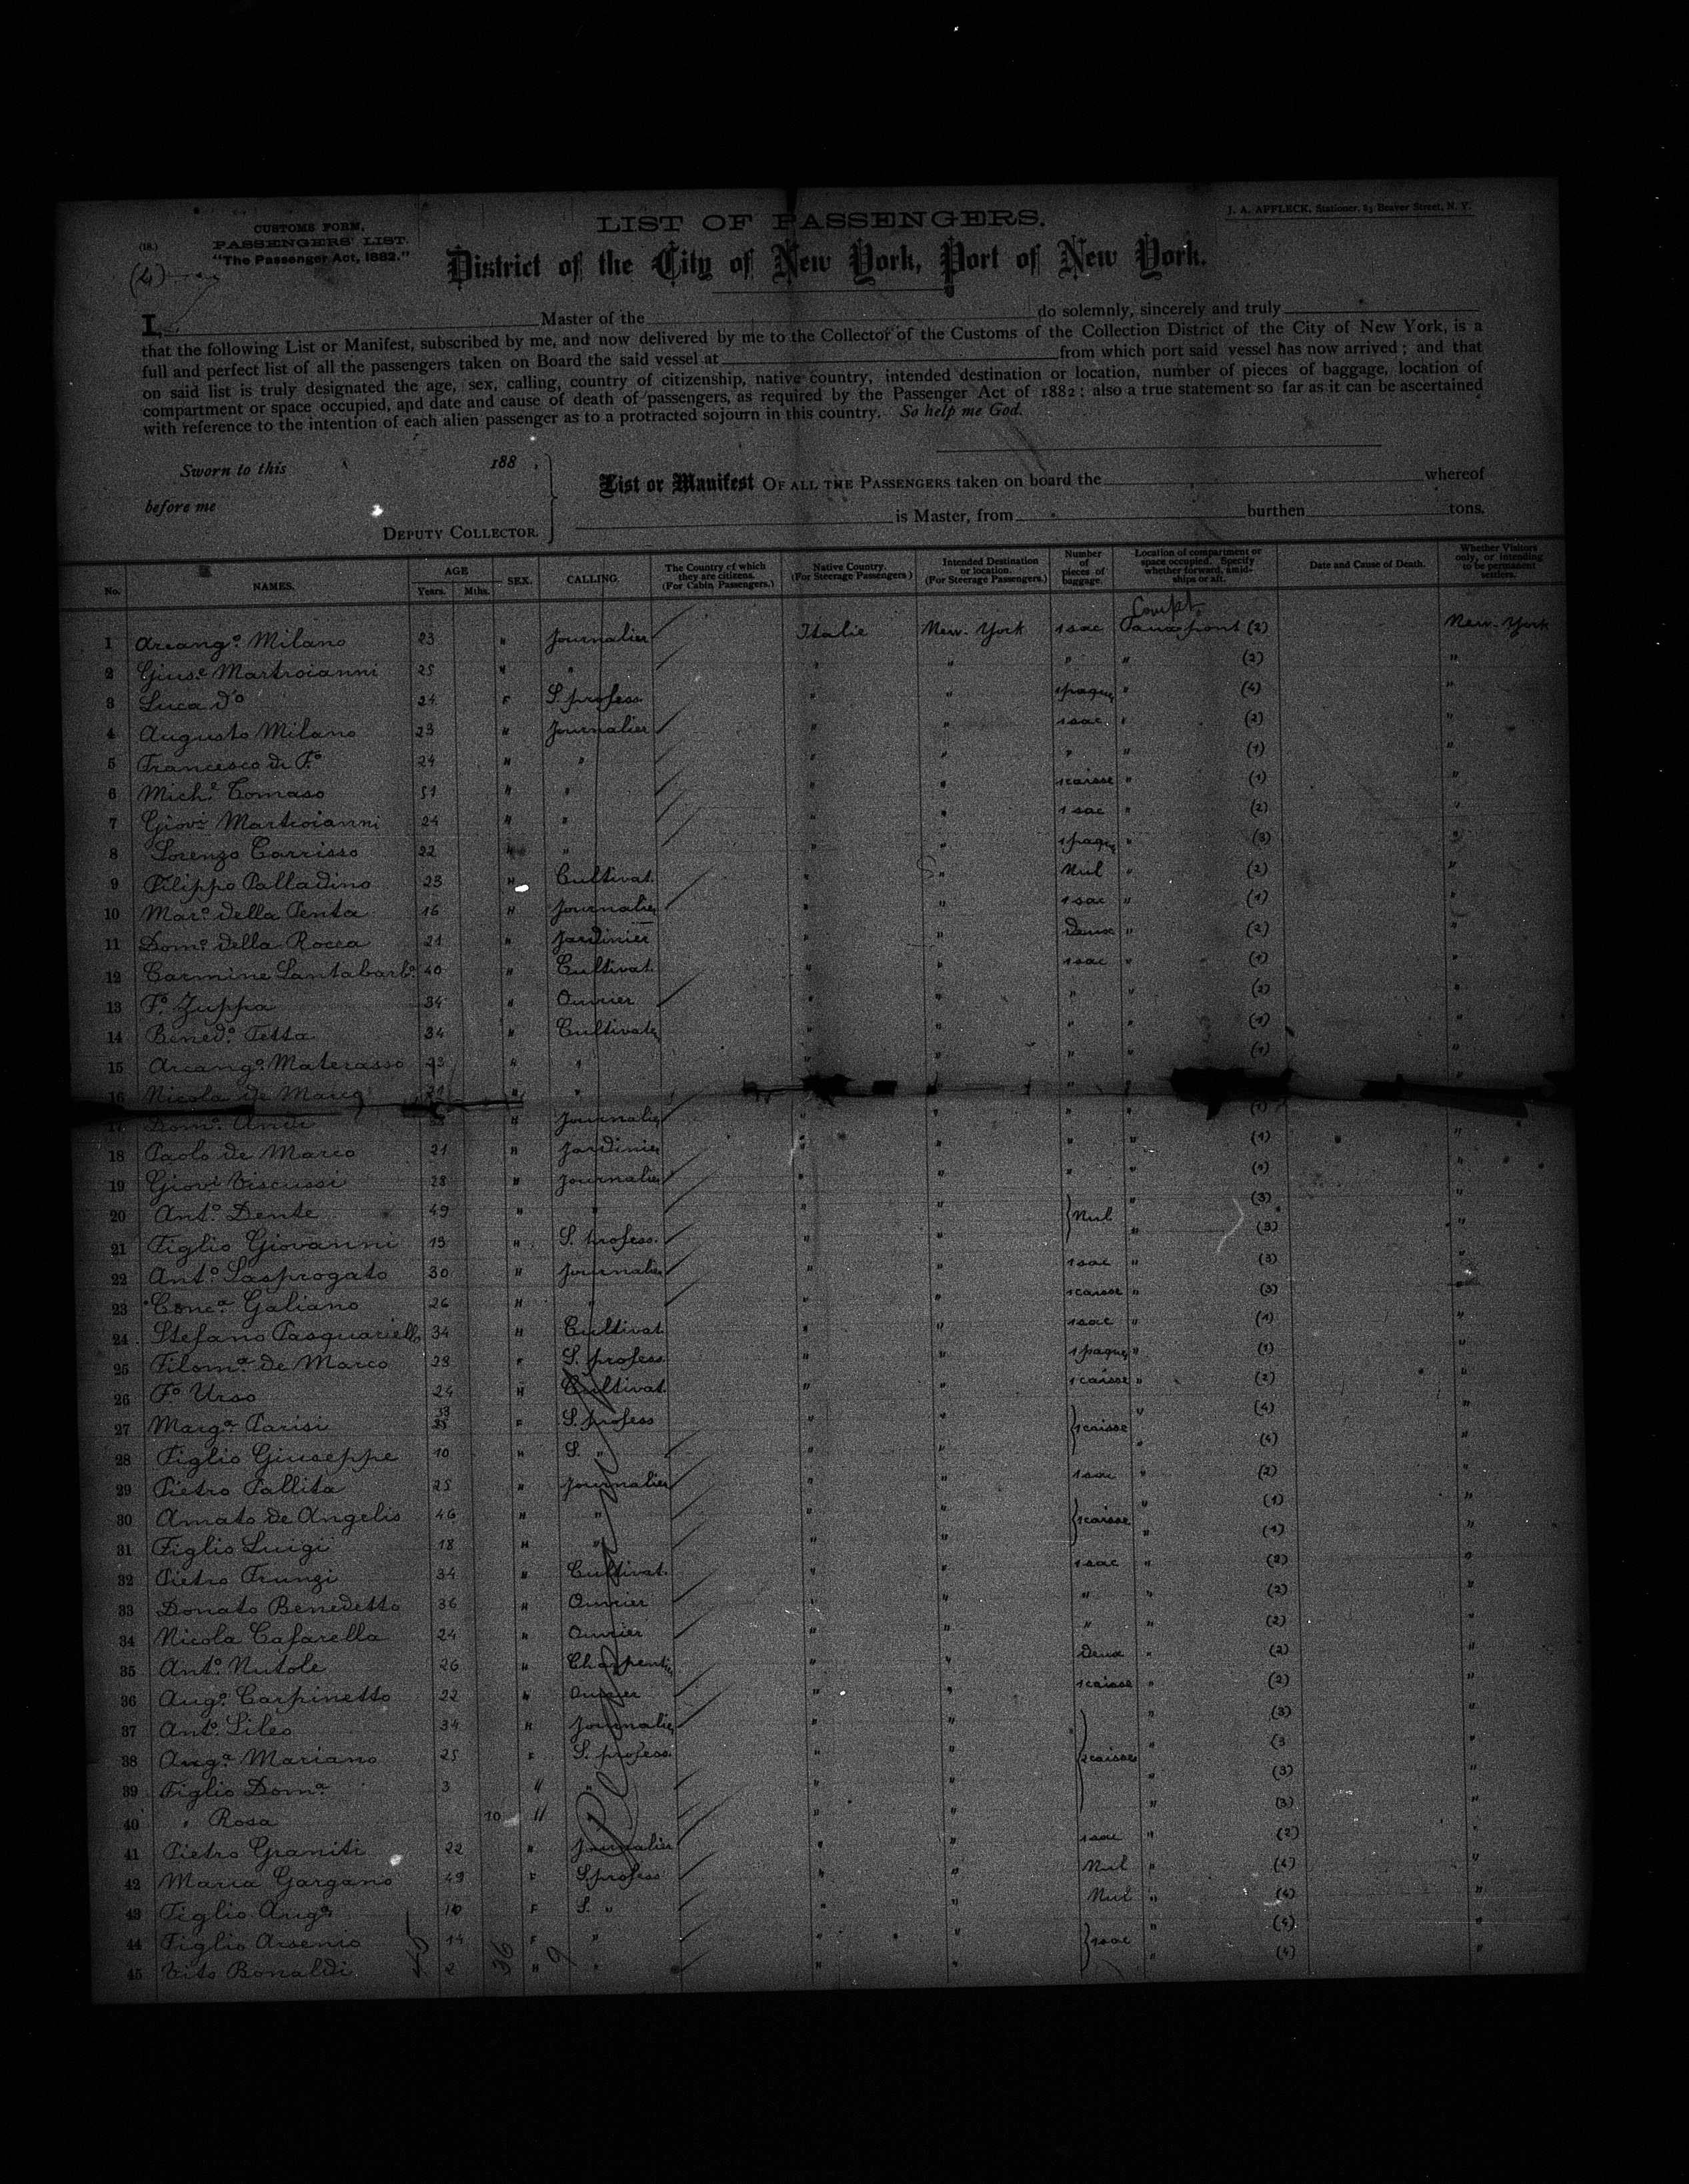 J. A. AFFLECK, Stationer, 83 Beaver Street, N. Y.
CUSTOMS FORM,
(18.) PASSENGERS' LIST.
"The Passenger Act, 1882."
(4)
LIST OF PASSENGERS.
District of the City of New York, Port of New York.
I, Master of the do solemnly, sincerely and truly
that the following List or Manifest, subscribed by me, and now delivered by me to the Collector of the Customs of the Collection District of the City of New York, is a
full and perfect list of all the passengers taken on Board the said vessel at from which port said vessel has now arrived; and that
on said list is truly designated the age, sex, calling, country of citizenship, native country, intended destination or location, number of pieces of baggage, location of
compartment or space occupied, and date and cause of death of passengers, as required by the Passenger Act of 1882; also a true statement so far as it can be ascertained
with reference to the intention of each alien passenger as to a protracted sojourn in this country. So help me God.
Sworn to this 188 .
before me
DEPUTY COLLECTOR.
List or Manifest OF ALL THE PASSENGERS taken on board the whereof
is Master, from burthen tons.
No. NAMES. AGE Years. Mths. SEX. CALLING. The Country of which they are citizens. (For Cabin Passengers.) Native Country. (For Steerage Passengers) Intended Destination or location. (For Steerage Passengers.) Number of pieces of baggage. Location of compartment or space occupied. Specify whether forward, amidships or aft. Date and Cause of Death. Whether Visitors only, or intending to be permanent settlers.
Compt
1 Arcang.o Milano 23 " Journalier Italie New-York 1 sac front (2) New-York
2 Gius.e Martroianni 25 " " " " " " (2) "
3 Luca do 24 F S. profess " " 1 paqu " (4) "
4 Augusto Milano 23 " Journalier " " 1 sac " (2) "
5 Francesco di F.o 24 H " " " " " (1) "
6 Mich.e Tomaso 51 " " " " 1 caisse " (1) "
7 Giov.i Martroianni 24 " " " " 1 sac " (2) "
8 Lorenzo Carrisso 22 " " " 1 paqu " (3) "
9 Filippo Palladino 23 H Cultivat. " " Nul " (2) "
10 Mar.o della Penta 16 H Journalier " " 1 sac " (1) "
11 Dom.o della Rocca 21 " Jardinier " " Deux " (2) "
12 Carmine Santabarb.a 40 " Cultivat. " " 1 sac " (1) "
13 F.o Zuppa 34 " Ouvrier " " " " (2) "
14 Bened.o Tetta 34 " Cultivat " " " " (1) "
15 Arcang.o Materasso 23 " " " " " " (1) "
16 Nicola de Marco " " "
17 Dom.o H Journalier " " " " (1)
18 Paolo de Marco 21 H Jardinier " " " " (1) "
19 Giov.i Viscussi 28 " Journalier " " " " (1) "
20 Ant.o Dente 49 " " " " Nul " (3) "
21 Figlio Giovanni 13 H S. profess. " " " (3) "
22 Ant.o Lasprogato 30 H Journalier " " 1 sac " (3) "
23 Conc.a Galiano 26 H " " " 1 caisse " (3) "
24 Stefano Pasquariello 34 H Cultivat. " " 1 sac " (1) "
25 Filom.a de Marco 28 F S. profess. " " 1 paqu " (1) "
26 F.o Urso 24 H Cultivat. " " 1 caisse " (2) "
27 Marg.a Parisi 33 F S. profess " " 1 caisse " (4) "
28 Figlio Giuseppe 10 H S. " " " " (4) "
29 Pietro Pallita 25 " Journalier " " 1 sac " (2) "
30 Amato de Angelis 46 " " " " 1 caisse " (1) "
31 Figlio Luigi 18 H " " " " (1) "
32 Pietro Frungi 34 " Cultivat. " " 1 sac " (2) "
33 Donato Benedetto 36 H Ouvrier " " " " (2) "
34 Nicola Cafarella 24 " Ouvrier " " " " (2) "
35 Ant.o Nutole 26 " Charpentier " " Deux " (2) "
36 Aug.o Carpinetto 22 H Ouvrier " " 1 caisse " (2) "
37 Ant.o Sileo 34 H Journalier " " " (3) "
38 Ang.a Mariano 25 F S. profess. " " 2 caisses " (3 "
39 Figlio Dom.a 3 " " " " " (3) "
40 " Rosa 10 " " " " (3) "
41 Pietro Graniti 22 " Journalier " " 1 sac " (2) "
42 Maria Gargano 49 F S. profess " " Nul " (4) "
43 Figlio Ang.a 10 F S. " " " Nul " (4) "
44 Figlio Arsenio 14 F " " " 1 sac " (4) "
45 Vito Bonaldi 2 H " " " " (4) "
45 36 9